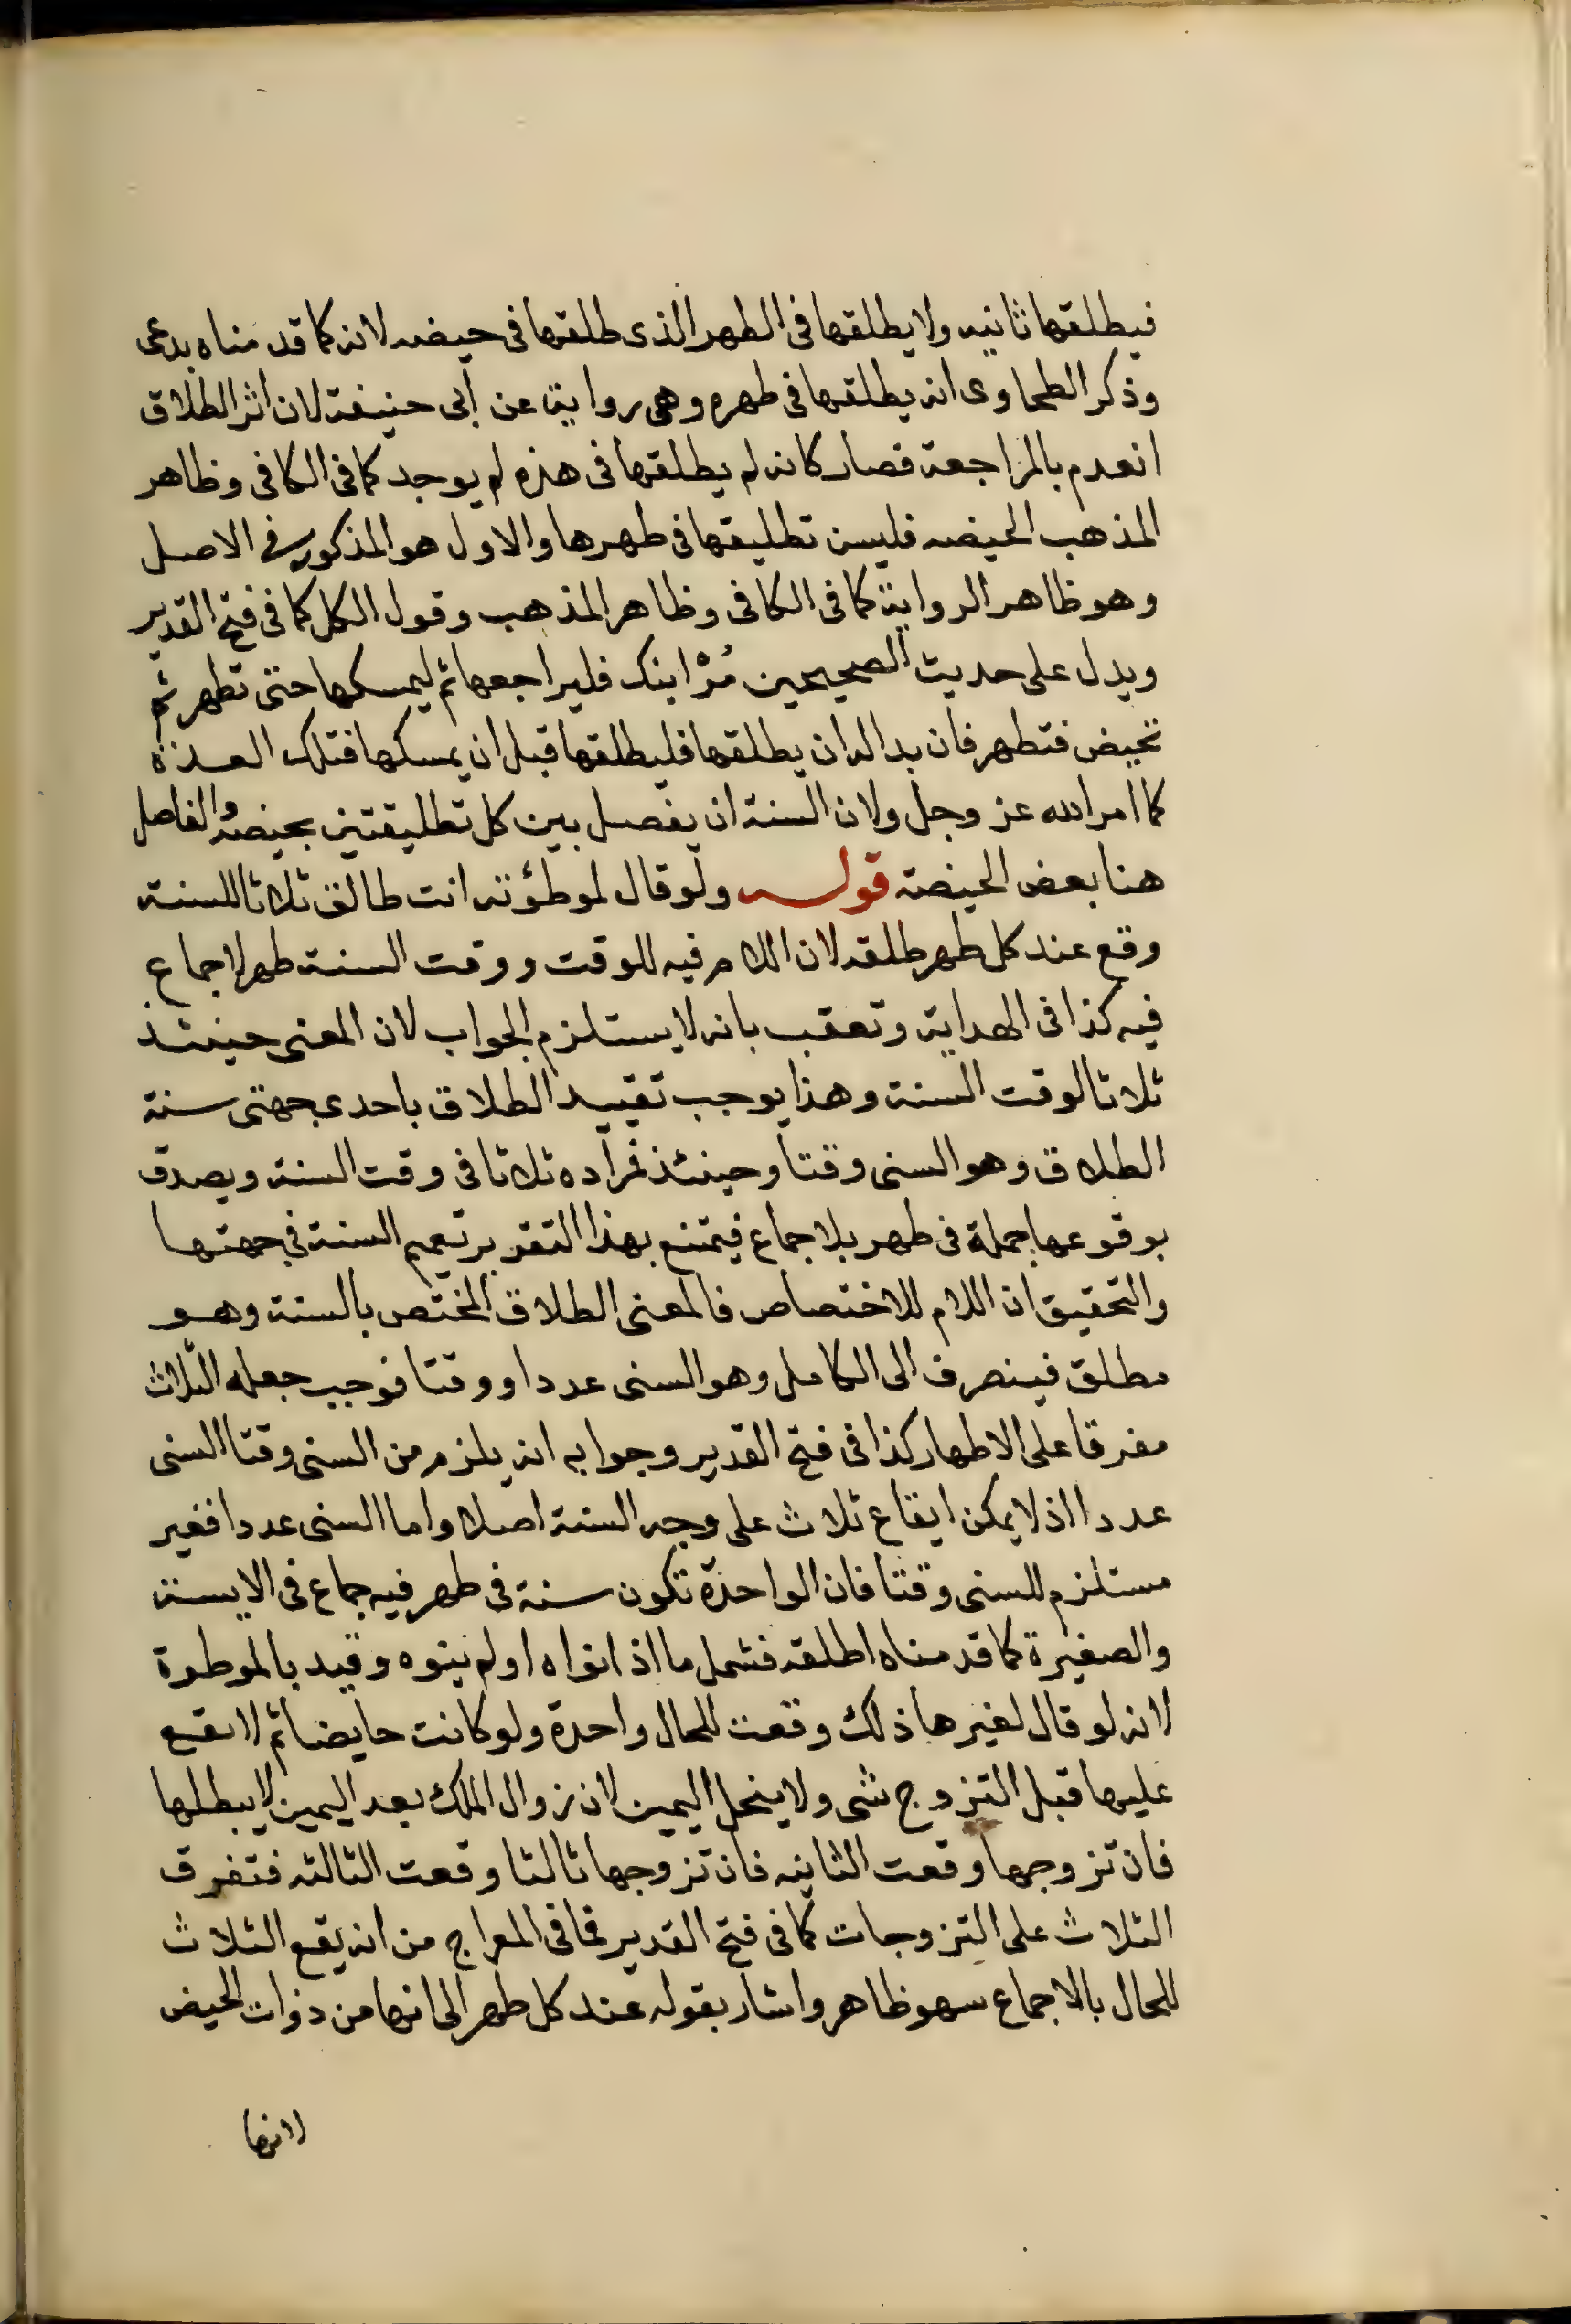 فيطلقها ثانيه ولا يطلقها فى الطهر الذى طلقها فى حيضه لانه كما قدمناه بدعى
وذكر الطحاوى انه يطلقها فى طهره وهى رواية عن أبى حنيفة لان اثر الطلاق
انعدم بالمراجعة فصار كانه لم يطلقها فى هذه لم يوجد كما فى الكافى وظاهر
المذهب الحيضه فليسن تطليقها فى طهرها والاول هو المذكور فى الاصل
وهو ظاهر الرواية كما فى الكافى وظاهر المذهب وقول الكل كما فى فتح القدير
ويدل على حديث الصحيحين مُرْ ابنك فليراجعها ثم ليمسكها حتى تطهر ثم
تحيض فتطهر فان بدا له ان يطلقها فليطلقها قبل ان يمسكها فتلك العدة
كما امر الله عز وجل ولان السنة ان يفصل بين كل تطليقتين بحيضة والفاصل
هنا بعض الحيضة قوله ولو قال لموطؤته انت طالق ثلاثا للسنة
وقع عند كل طهر طلقه لان اللام فيه للوقت ووقت السنة طهر لا جماع
فيه كذا فى الهداية وتعقب بانه لا يستلزم الجواب لان المعنى حينئذ
ثلاثا لوقت السنة وهذا يوجب تقييد الطلاق باحدى جهتى سنة
الطلاق وهو السنى وقتا وحينئذ فمراده ثلاثا فى وقت السنة ويصدق
بوقوعها جملة فى طهر بلا جماع فيمتنع بهذا التقرير تعميم السنة فى جهتها
والتحقيق ان اللام للاختصاص فالمعنى الطلاق المختص بالسنة وهو
مطلق فينصرف الى الكامل وهو السنى عددا ووقتا فوجب جعله الثلاث
مفرقا على الاطهار كذا فى فتح القدير وجوابه انه يلزم من السنى وقتا السنى
عددا اذ لا يمكن ايقاع ثلاث على وجه السنة اصلا واما السنى عددا فغير
مستلزم للسنى وقتا فان الواحدة تكون سنة فى طهر فيه جماع فى الايسة
والصغيرة كما قدمناه اطلقه فشمل ما اذا نواه او لم ينوه وقيد بالموطوة
لانه لو قال لغيرها ذلك وقعت للحال واحدة ولو كانت حايضا ثم لا يقع
عليها قبل التزوج شى ولا ينحل اليمين لان زوال الملك بعد اليمين لا يبطلها
فان تزوجها وقعت الثانيه فان تزوجها ثالثا وقعت الثالثه فتفرق
الثلاث على التزوجات كما فى فتح القدير فما فى المعراج من انه يقع الثلاث
للحال بالاجماع سهو ظاهر واشار بقوله عند كل طهر الى انها من ذوات الحيض
لانها